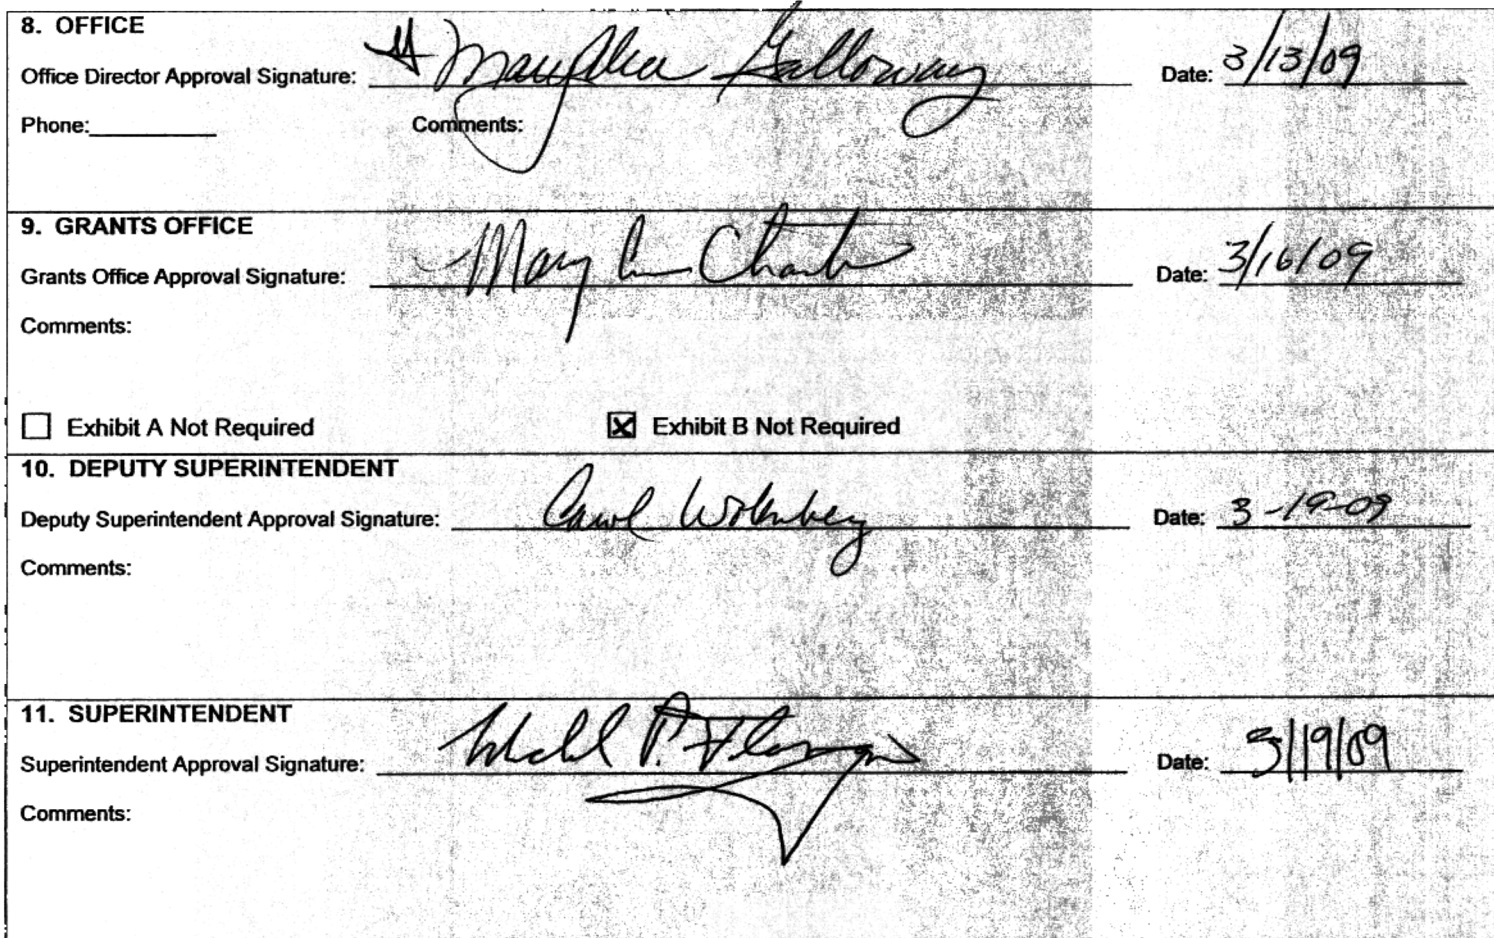 8. OFFICE
Office Director Approval Signature: Galloway Date: 3/13/09
Phone: Comments:
9. GRANTS OFFICE
Grants Office Approval Signature: Mary Date: 3/16/09
Comments:
Exhibit A Not Required Exhibit B Not Required
10. DEPUTY SUPERINTENDENT
Deputy Superintendent Approval Signature: Carol Date: 3-19-09
Comments:
11. SUPERINTENDENT
Superintendent Approval Signature: P. Date: 3/19/09
Comments: